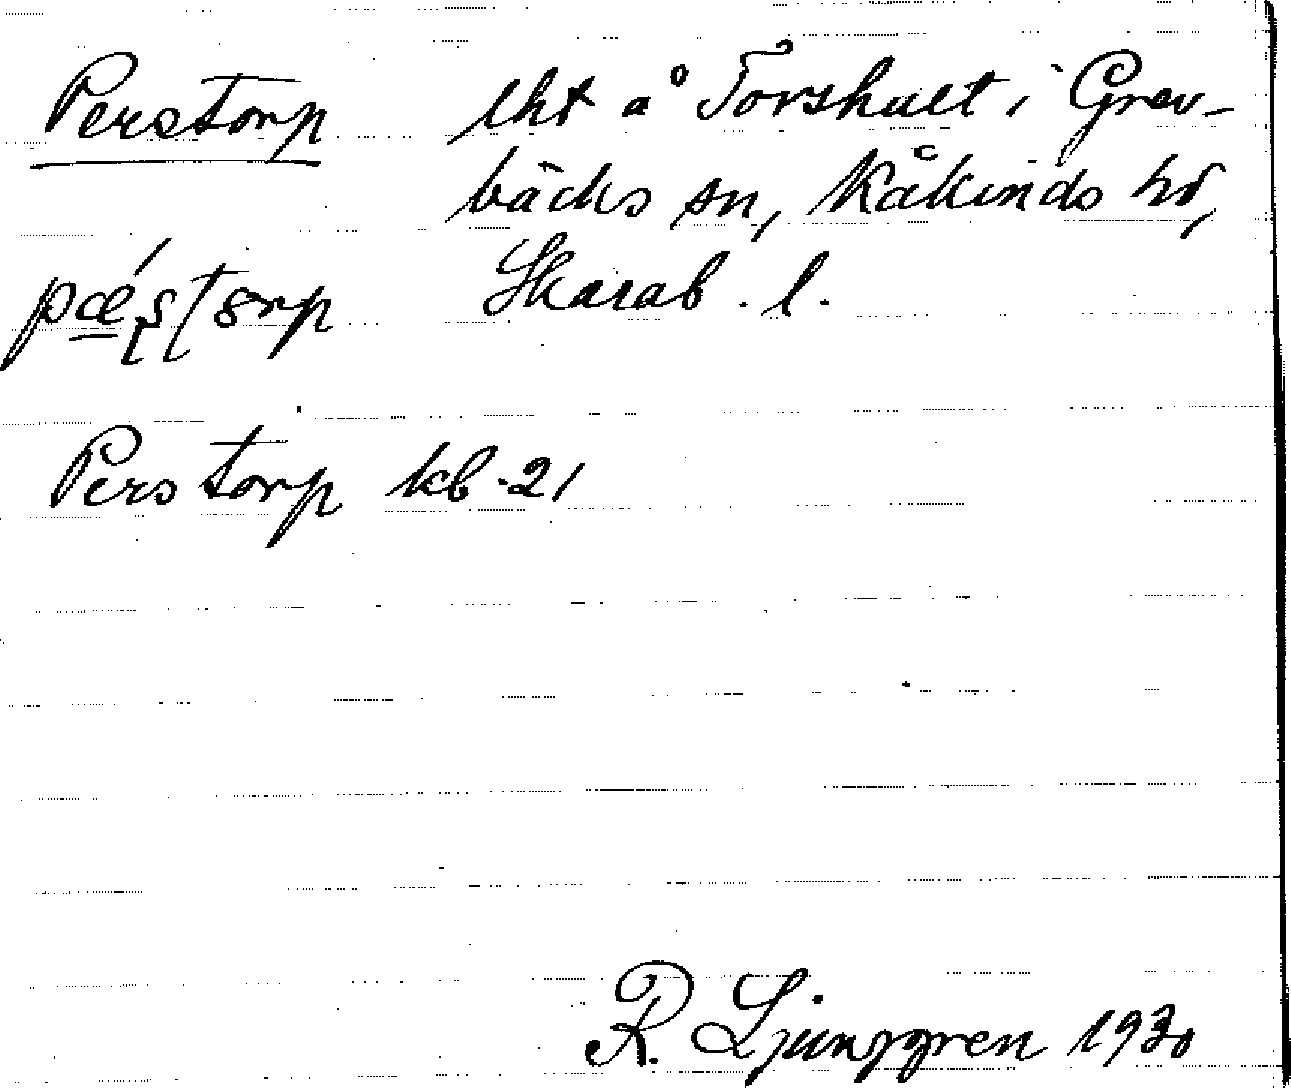 Perstorp lht å Torshult i Grev-
bäcks sn, Kåkinds hd,
Skarab. l.
Perstorp kb. 21
R. Ljunggren 1930